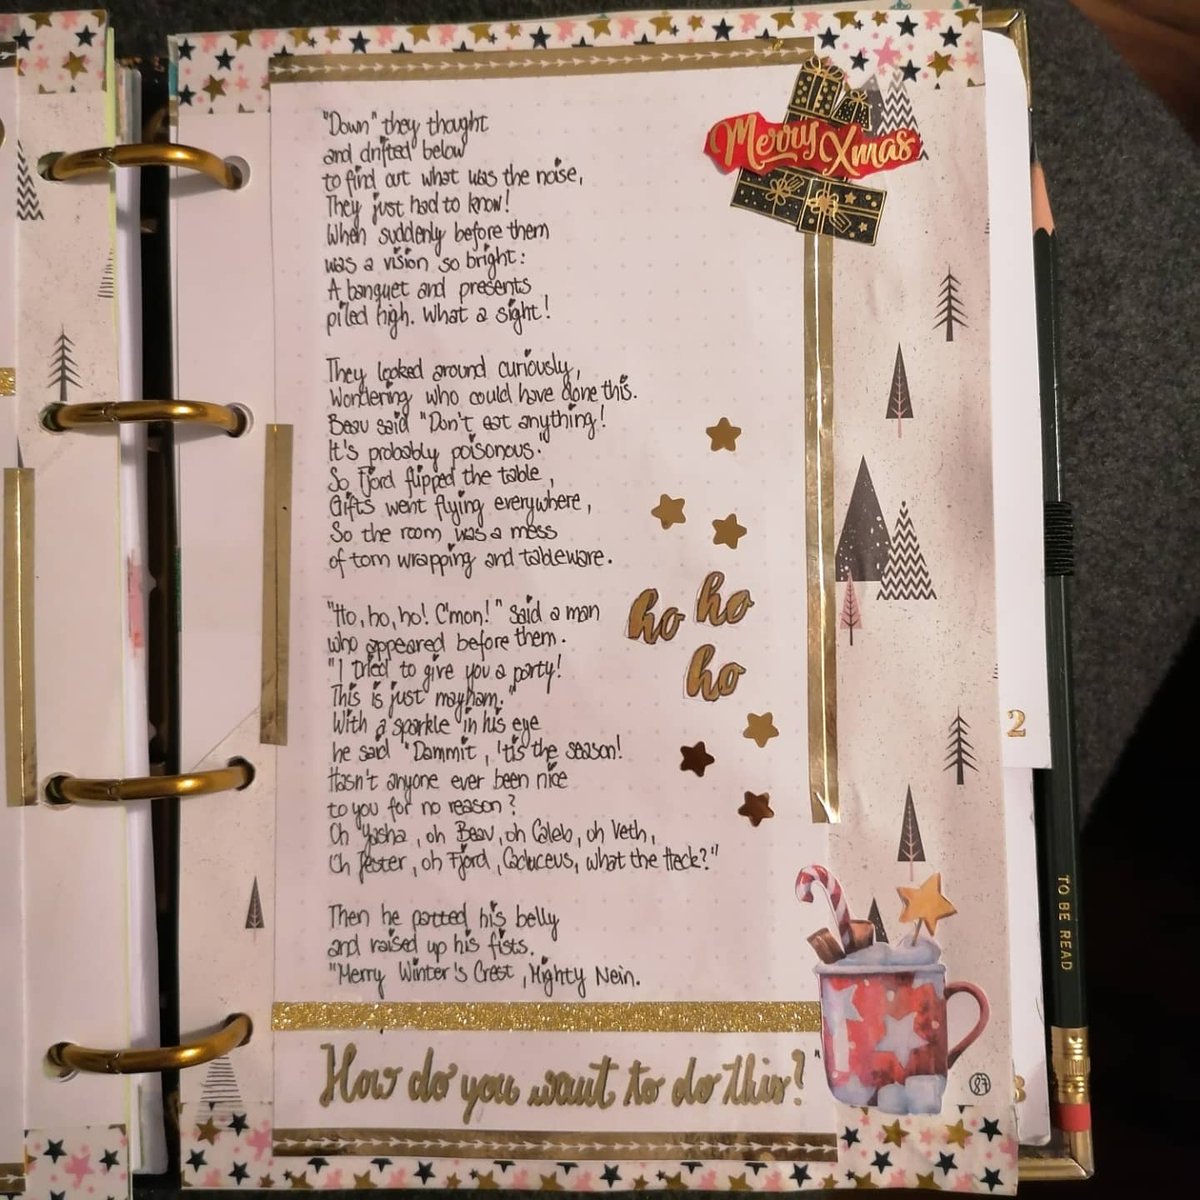 Merry Xmas
"Down" they thought
and drifted below
to find out what was the noise,
They just had to know!
When suddenly before them
was a vision so bright:
A banquet and presents
piled high. What a sight!
They looked around curiously,
Wondering who could have done this.
Beau said "Don't eat anything!
It's probably poisonous."
So Fjord flipped the table,
Gifts went flying everywhere,
So the room was a mess
of torn wrapping and tableware.
"Ho, ho, ho! C'mon!" Said a man
who appeared before them.
"I tried to give you a party!
This is just mayham."
With a sparkle in his eye
he said "Dammit, 'tis the season!
Hasn't anyone ever been nice
to you for no reason?
Oh Yasha, oh Beau, oh Caleb, oh Veth,
Oh Jester, oh Fjord, Caduceus, what the Heck?"
Then he patted his belly
and raised up his fists.
"Merry Winter's Crest, Mighty Nein.
How do you want to do this?"
ho ho
ho
2
3
TO BE READ
87